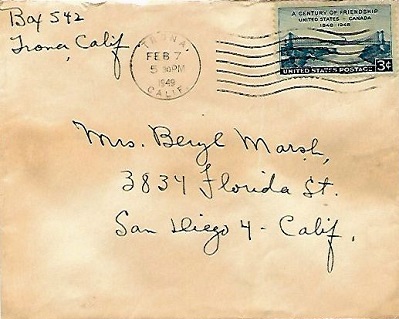 Box 542
Trona, Calif.
TRONA,
FEB 7
5 30PM
1949
CALIF.
A CENTURY OF FRIENDSHIP
UNITED STATES - CANADA
1848-1948
UNITED STATES POSTAGE 3¢
Mrs. Beryl Marsh,
3834 Florida St.
San Diego 4 - Calif.